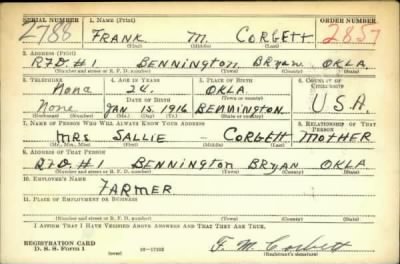 SERIAL NUMBER 1. NAME (Print) ORDER NUMBER
2788 FRANK M. CORBETT 2857
(First) (Middle) (Last)
2. ADDRESS (Print)
RFD # 1 BENNINGTON BRYAN OKLA.
(Number and street or R. F. D. number) (Town) (County) (State)
3. TELEPHONE 4. AGE IN YEARS 5. PLACE OF BIRTH 6. COUNTRY OF CITIZENSHIP
None 24. OKLA.
DATE OF BIRTH (Town or county)
None Jan 15. 1916 BENNINGTON U.S.A.
(Mo.) (Day) (Yr.) (State or country)
7. NAME OF PERSON WHO WILL ALWAYS KNOW YOUR ADDRESS 8. RELATIONSHIP OF THAT PERSON
MRS SALLIE - CORBETT MOTHER
(Mr., Mrs., Miss) (First) (Middle) (Last)
9. ADDRESS OF THAT PERSON
RFD # 1 BENNINGTON BRYAN OKLA
(Number and street or R. F. D. number) (Town) (County) (State)
10. EMPLOYER'S NAME
FARMER
11. PLACE OF EMPLOYMENT OR BUSINESS
(Number and street or R. F. D. number) (Town) (County) (State)
I AFFIRM THAT I HAVE VERIFIED ABOVE ANSWERS AND THAT THEY ARE TRUE.
REGISTRATION CARD
D. S. S. Form 1 (over) F. M. Corbett
(Registrant's signature)